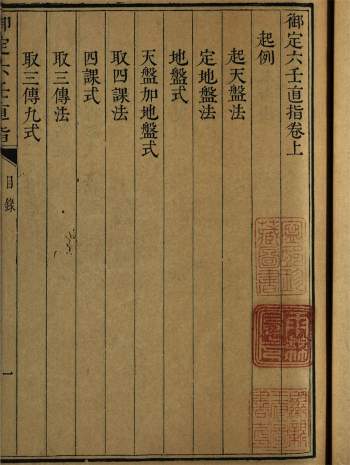 御定六壬直指卷上
起例
起天盤法
定地盤法
地盤式
天盤加地盤式
取四課法
四課式
取三傳法
取三傳九式
御定六壬直指
目錄
一